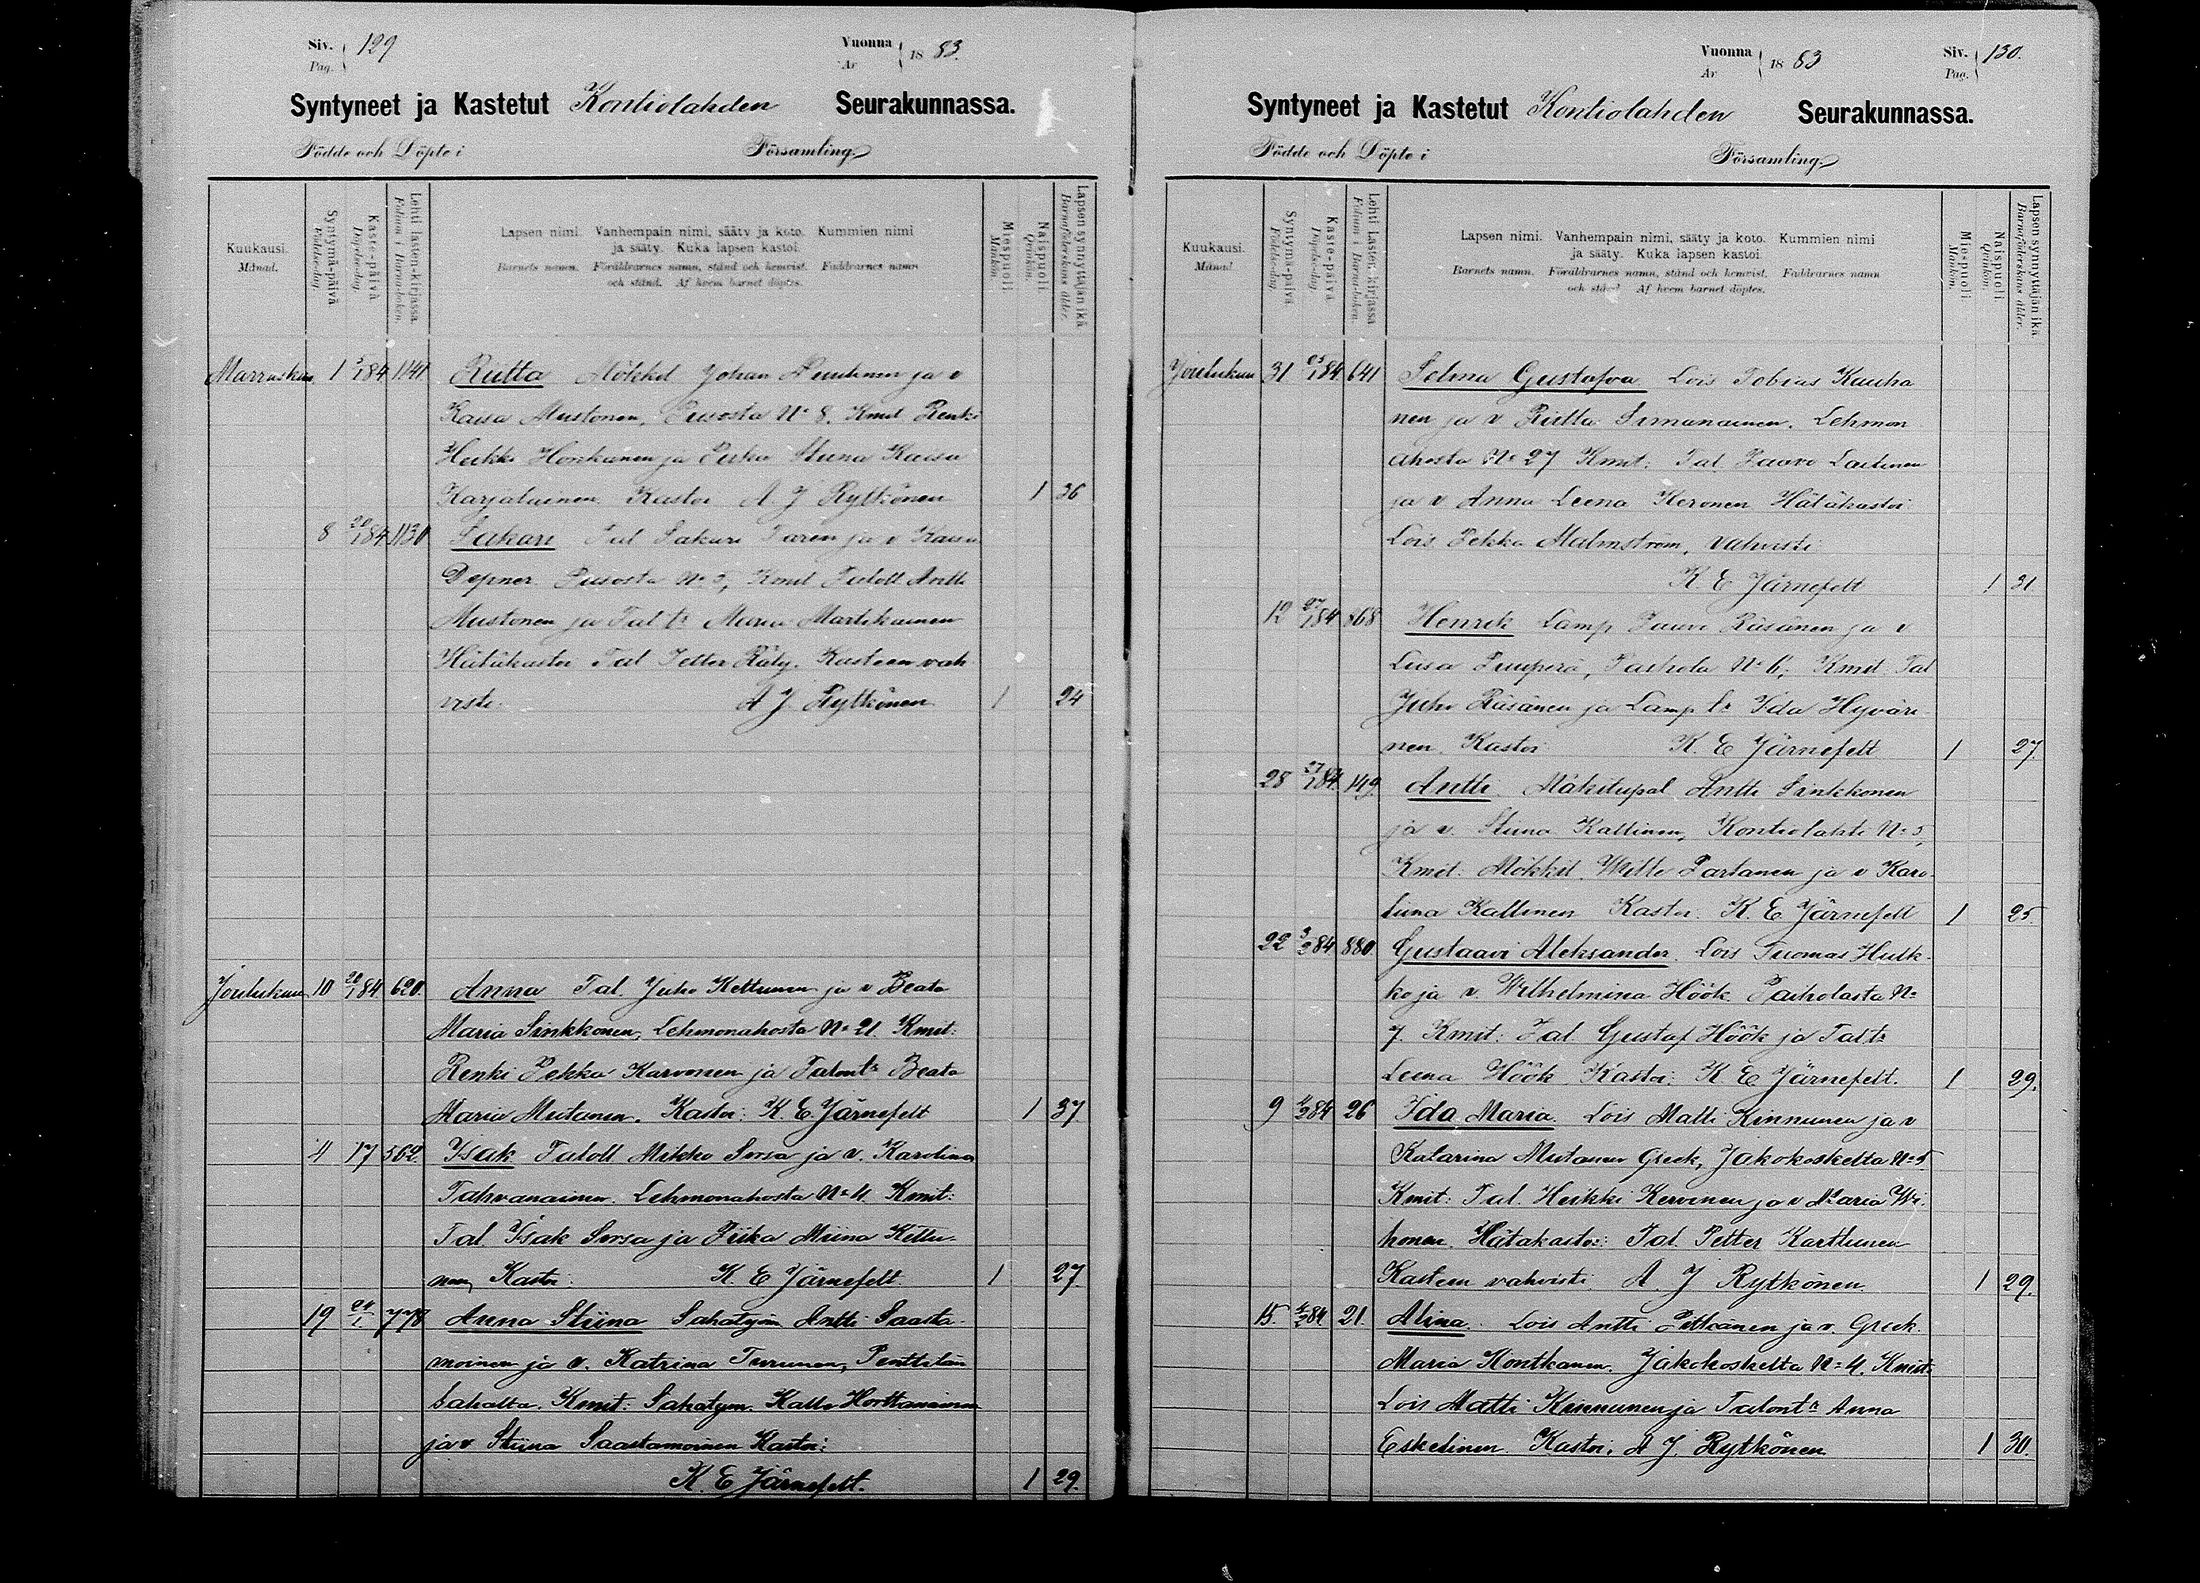 Siv. 129
Pag.
Vuonna 1883.
År
Syntyneet ja Kastetut Kontiolahden Seurakunnassa.
Födde och Döpte i Församling.
Kuukausi.
Månad.
Syntymä-päivä
Födelse-dag.
Kaste-päivä
Döpelse-dag.
Lehti lasten-kirjassa.
Folium i Barna-boken.
Lapsen nimi. Vanhempain nimi, sääty ja koto. Kummien nimi
ja sääty. Kuka lapsen kastoi.
Barnets namn. Föräldrarnes namn, stånd och hemvist. Faddrarnes namn
och stånd. Af hvem barnet döptes.
Miespuoli
Mankön.
Naispuoli.
Qvinkön.
Lapsensynnyttäjän ikä
Barnaföderskans ålder.
Marraskuu 1 3/1 84 1141 Riitta Mökkil Johan ja v
Kaisa Mustonen, Puso​sta No 8. Kmit Renki
Heikki Honkanen ja Piika Stiina Kaisa
Karjalainen Kastoi A J Rytkönen 1 36
8 20/1 84 1130 Sakari Tal Sakari ja v Kaisa
Pusosta No 5, Kmit Taloll Antti
Mustonen ja Tal tr Maria Martikainen
Hätäkastoi Tal Petter Räty. Kasteen vah
visti. A J. Rytkönen 1 24
Joulukuu 10 20/1 84 620. Anna Tal. Juho Kettunen ja v Beata
Maria Sinkkonen, Lehmonahosta No 21. Kmit:
Renki Pekka Karvonen ja Talont tr Beata
Maria Mutanen. Kastoi: K. E. Järnefelt 1 37.
4 17 562. Isak Taloll Mikko Sorsa ja v. Karolina
Tahvanainen. Lehmonahosta No 4. Kmit:
Tal. Isak Sorsa ja Piika Miina Kettu-
nen, Kastoi: K. E Järnefelt. 1 27.
19 24/1 778 Anna Stiina Sahatyöm Antti Saasta-
moinen ja v. Katrina Turunen, Penttilän
Sahalta. Kmit: Sahatyöm. Kalle Horttanainen
ja v Stiina Saastamoinen Kastoi:
K. E Järnefelt. 1 29.
Vuonna 1883
År
Siv. 130.
Pag.
Syntyneet ja Kastetut Kontiolahden Seurakunnassa.
Födde och Döpte i Församling.
Kuukausi.
Månad
Syntymä-päivä
Födelse-dag.
Kaste-päivä
Döpelse-dag.
Lehti Lasten kirjassa
Folium i Barna-boken.
Lapsen nimi. Vanhempain nimi, sääty ja koto. Kummien nimi
ja sääty. Kuka lapsen kastoi.
Barnets namn. Föräldrarnes namn, stånd och hemvist. Faddrarnes namn
och stånd Af hvem barnet döptes.
Miespuoli
Mankön.
Naispuoli
Qvinkön.
Lapsensynnyttäjän ikä
Barnaföderskans ålder.
Joulukuu 31 1 84 641 Selma Gustafva Lois Tobias Kauha
nen ja v Riitta Simanainen. Lehmon
ahosta No 27 Kmit: Tal Paavo Laitinen
ja v Anna Leena Keronen Hätäkastoi
Lois Pekka Malmström, Vahvisti
K. E Järnefelt 1 31
12 27/1 84 868 Henrik Lamp Paavo Räsänen ja v
Liisa Puuperä, Paihola No 6, Kmit. Tal
Juho Räsänen ja Lamp tr Ida Hyväri-
nen. Kastoi K. E Järnefelt 1 27.
28 27/1 84. 149. Antti. Mäkitupal Antti Sinkkonen
ja v. Stiina Kallinen, Kontiolahti No 3,
Kmit: Mökkil. Wille Partanen ja v Karo-
liina Kallinen Kastoi: K. E Järnefelt 1 25
22 3/2 84 880 Gustaavi Aleksander. Lois Tuomas Hulk-
ko ja v. Wilhelmina Höök Paiholasta No
7. Kmit: Tal Gustaf Höök ja Tal tr
Leena Höök Kastoi: K E Järnefelt. 1 29.
9 4/2 84 26 Ida Maria. Lois Matti Kinnunen ja v
Katarina Mutanen Greek, Jakokoskelta No 5
Kmit: Tal. Heikki Kervinen ja v Maria Wi-
honen. Hätäkastoi: Tal Petter Karttunen
Kasteen vahvisti A. J Rytkönen. 1 29.
15. 4/2 84 21. Alina. Lois Antti Pitkänen ja v. Greek.
Maria Kontkanen. Jakokoskelta No 4. Kmit:
Lois Matti Kinnunen ja Talont tr Anna
Eskelinen. Kastoi: A J. Rytkönen 1 30.